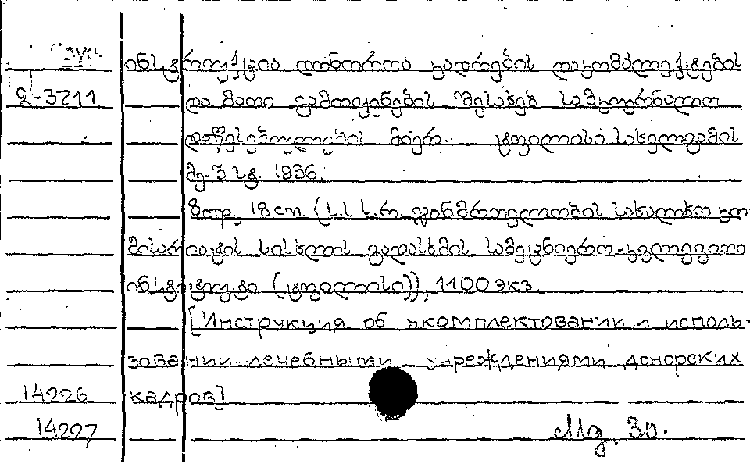 ინსტრუქცია დონორთა კადრების დაკომპლექტების
2-3211 და მათი გამოყენების შესახებ სამკურნალო
დაწესებულებების მიერ. ტფილისი, სახელგამის
მე-3 სტ. 1936.
8 გვ. 18 cm. (ს.ს.ს.რ. ჯანმრთელობის სახალხო კო-
მისარიატის სისხლის გადასხმის სამეცნიერო-კვლევითი
ინსტიტუტი (ტფილისი)), 1100 ეკზ.
[Инструкция об укомплектовании и исполь-
зовании лечебными учреждениями донорских
14226 кадров]
14227